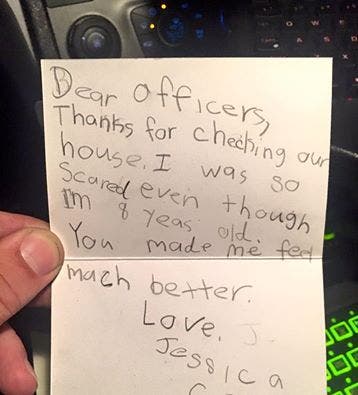 Dear Officers,
Thanks for cheching our
house. I was so
Scared even though
Im 8 yeas old.
You made me feel
mach better.
Love,
Jessica